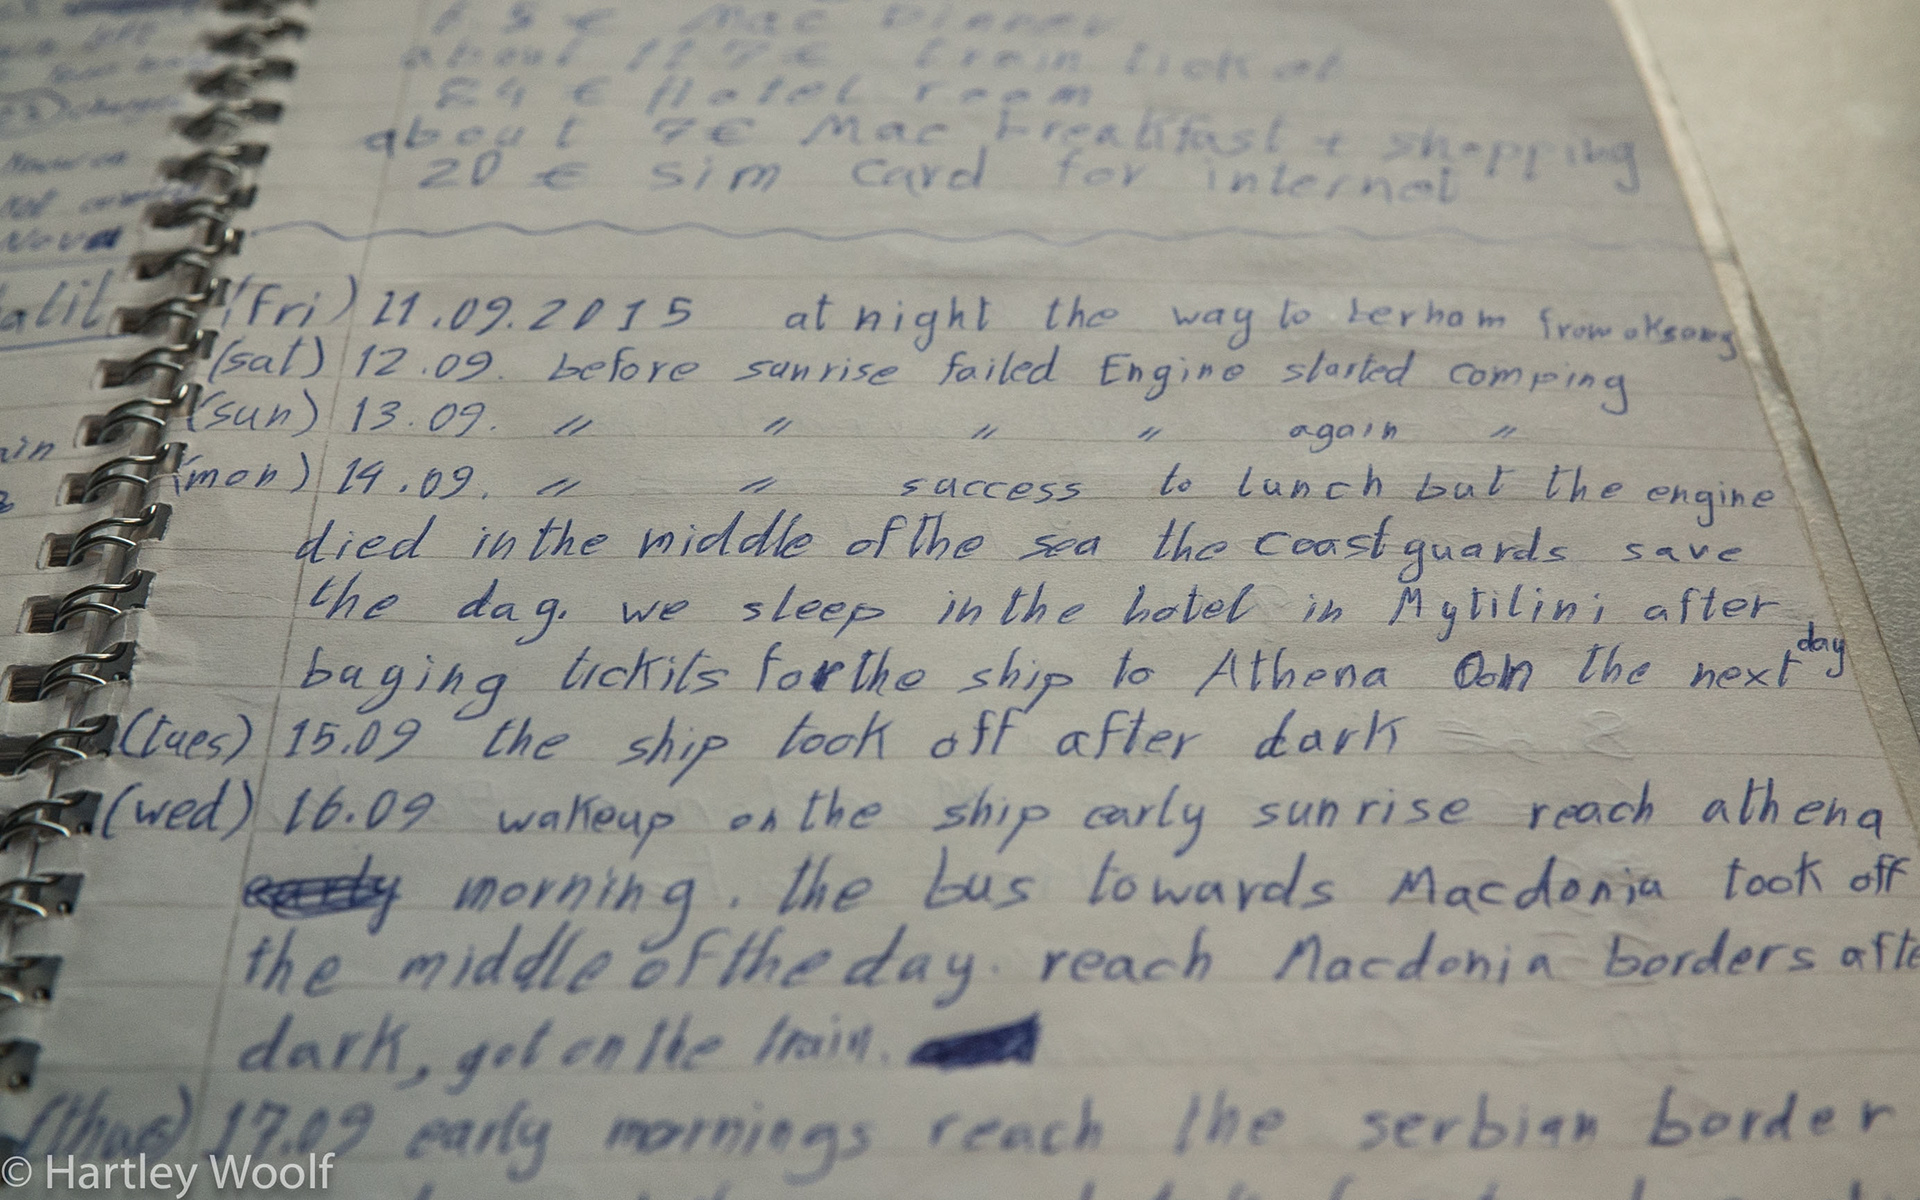 6.5 € Mac Dinner
about 127 € train tickat
84 € Hotel room
about 7€ Mac Freakfast + shopping
20 € sim card for internet
(Fri) 11.09.2015 at night the way to from
(sat) 12.09. before sunrise failed Engine started comping
(sun) 13.09. 〃 〃 〃 〃 again 〃
(mon) 14.09. 〃 〃 success to lunch but the engine
died in the middle of the sea the coast guards save
the dag. we sleep in the hotel in Mytilini after
baging tickits for the ship to Athena on the next day
(tues) 15.09 the ship took off after dark
(wed) 16.09 wakeup on the ship early sunrise reach athena
morning. the bus towards Macdonia took off
the middle of the day. reach Macdonia borders afte
dark, got on the train.
(thus) 17.09 early mornings reach the serbian border
© Hartley Woolf